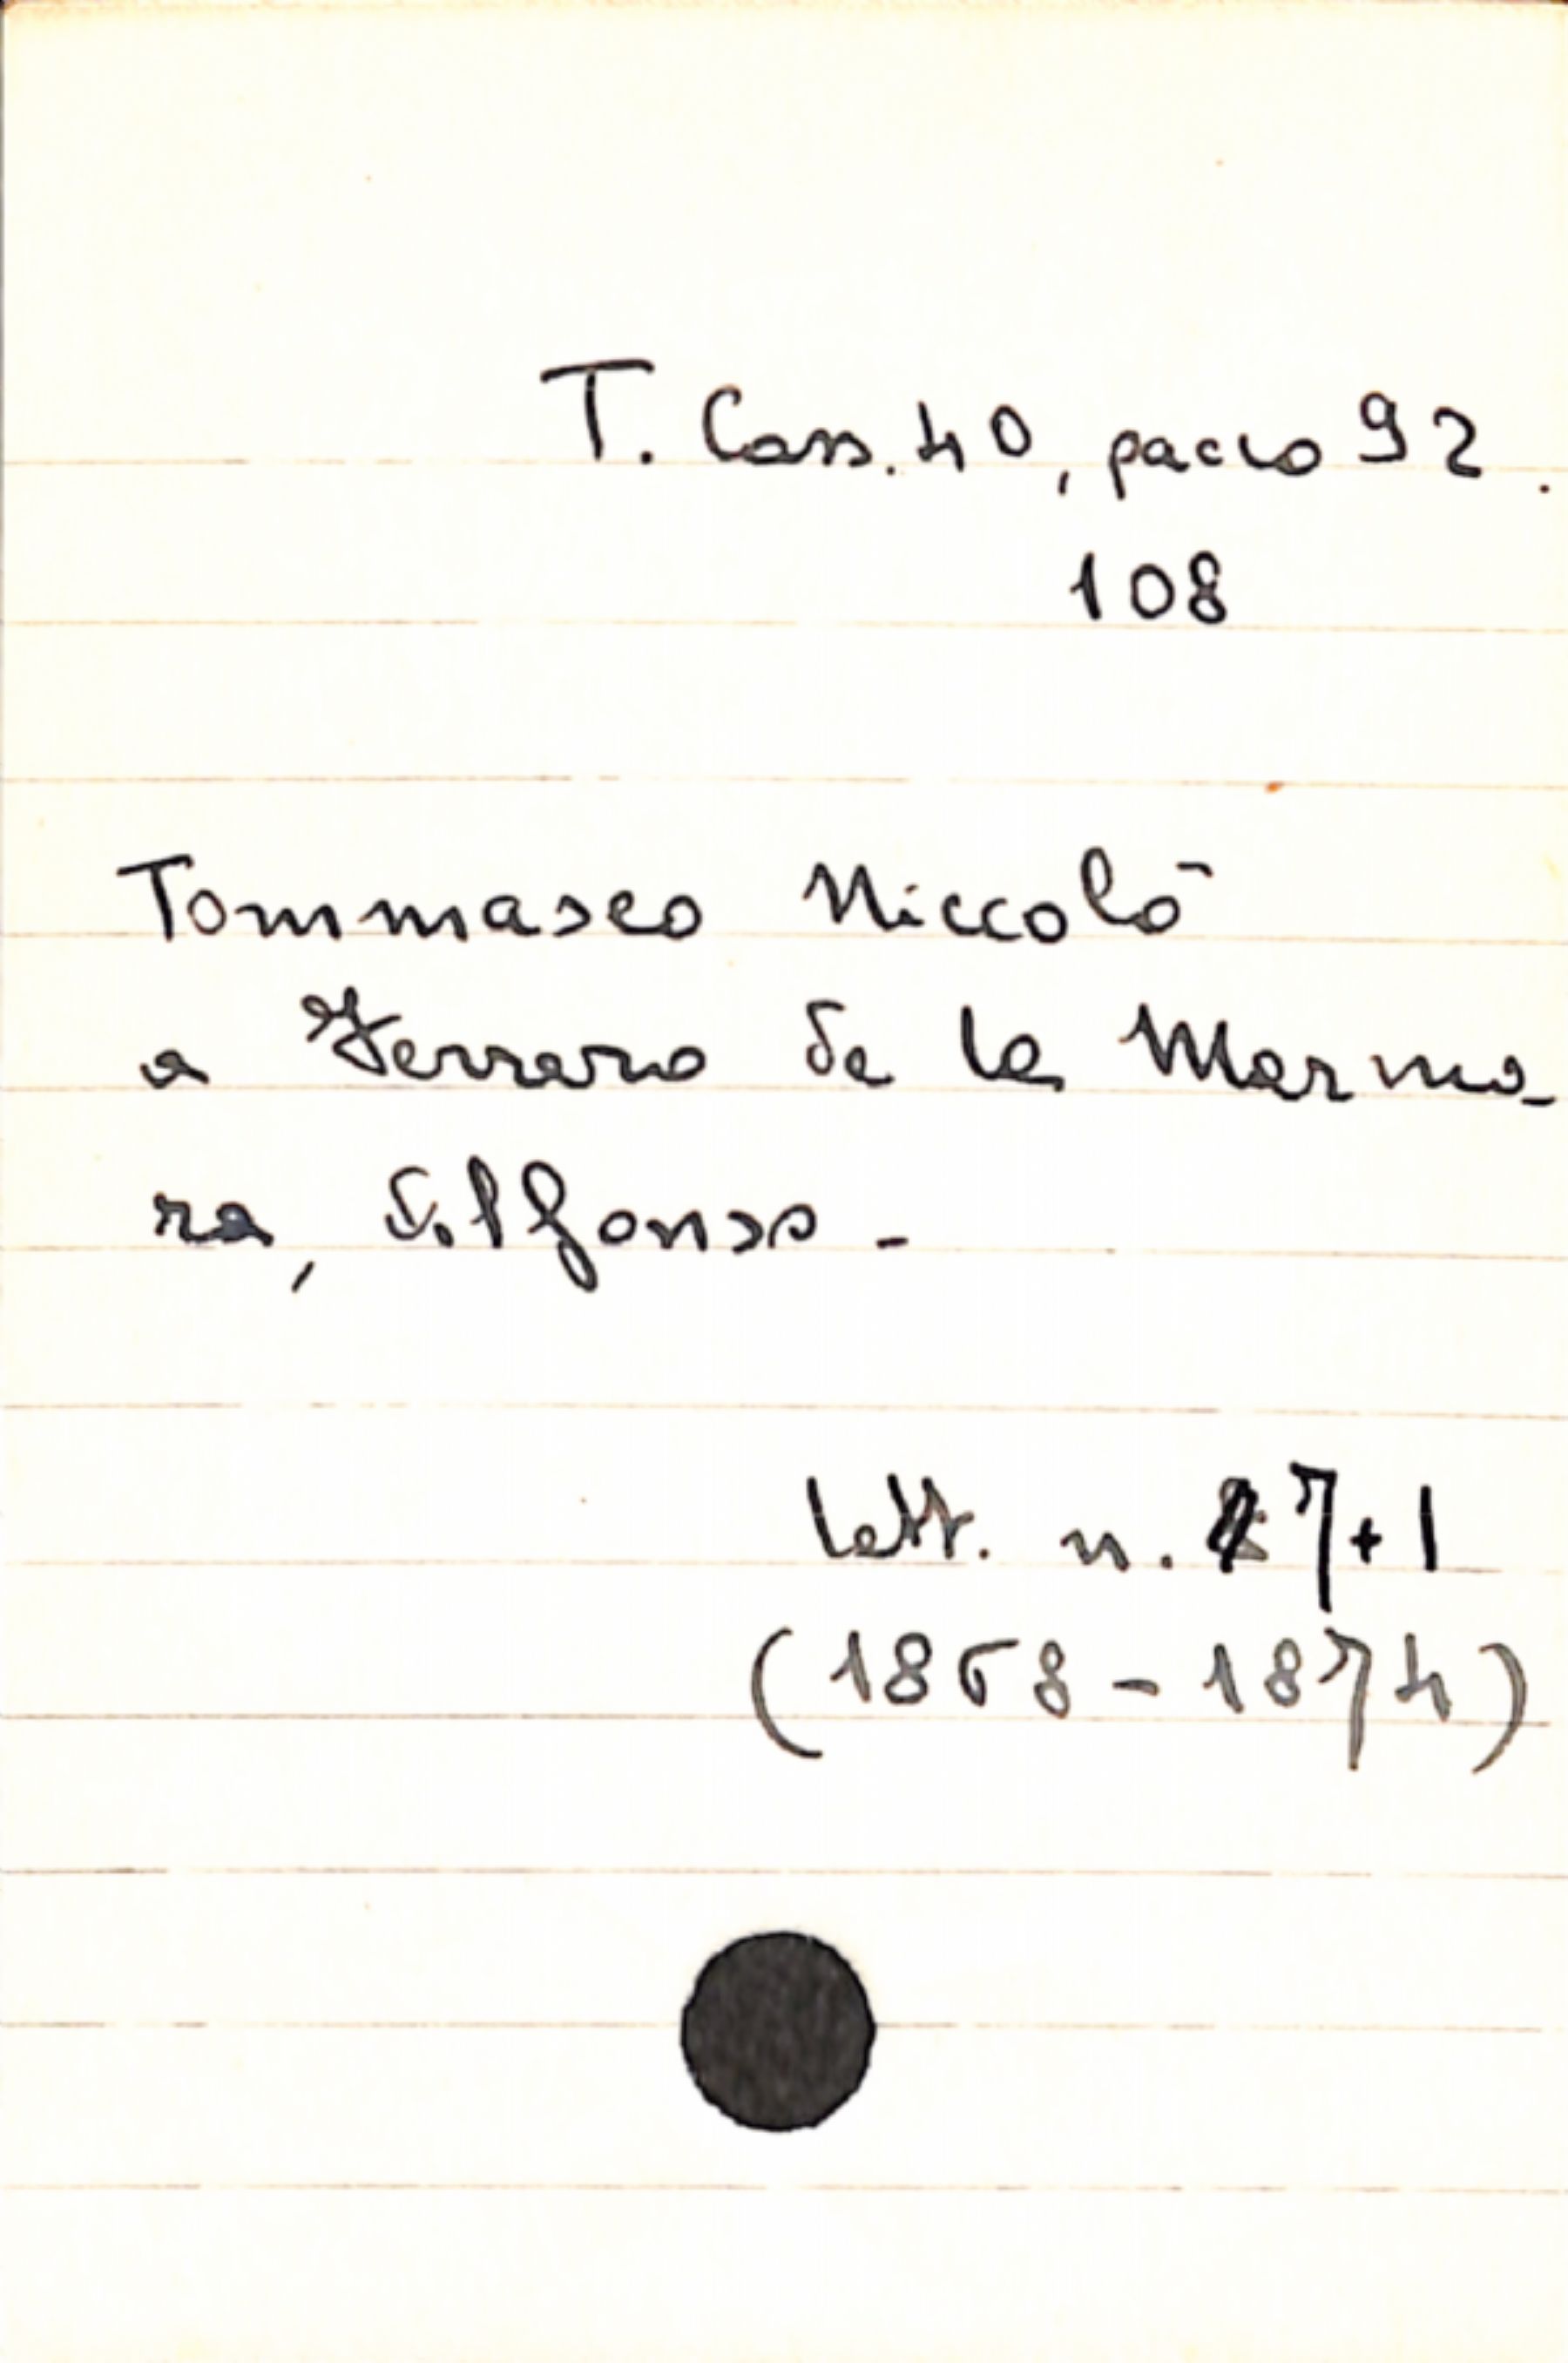 T. Cass. 40, pacco 92.
108
Tommaseo Niccolò
a Ferrero de la Marmo-
ra, Alfonso -
lett. n. 7+1
(1868-1874)